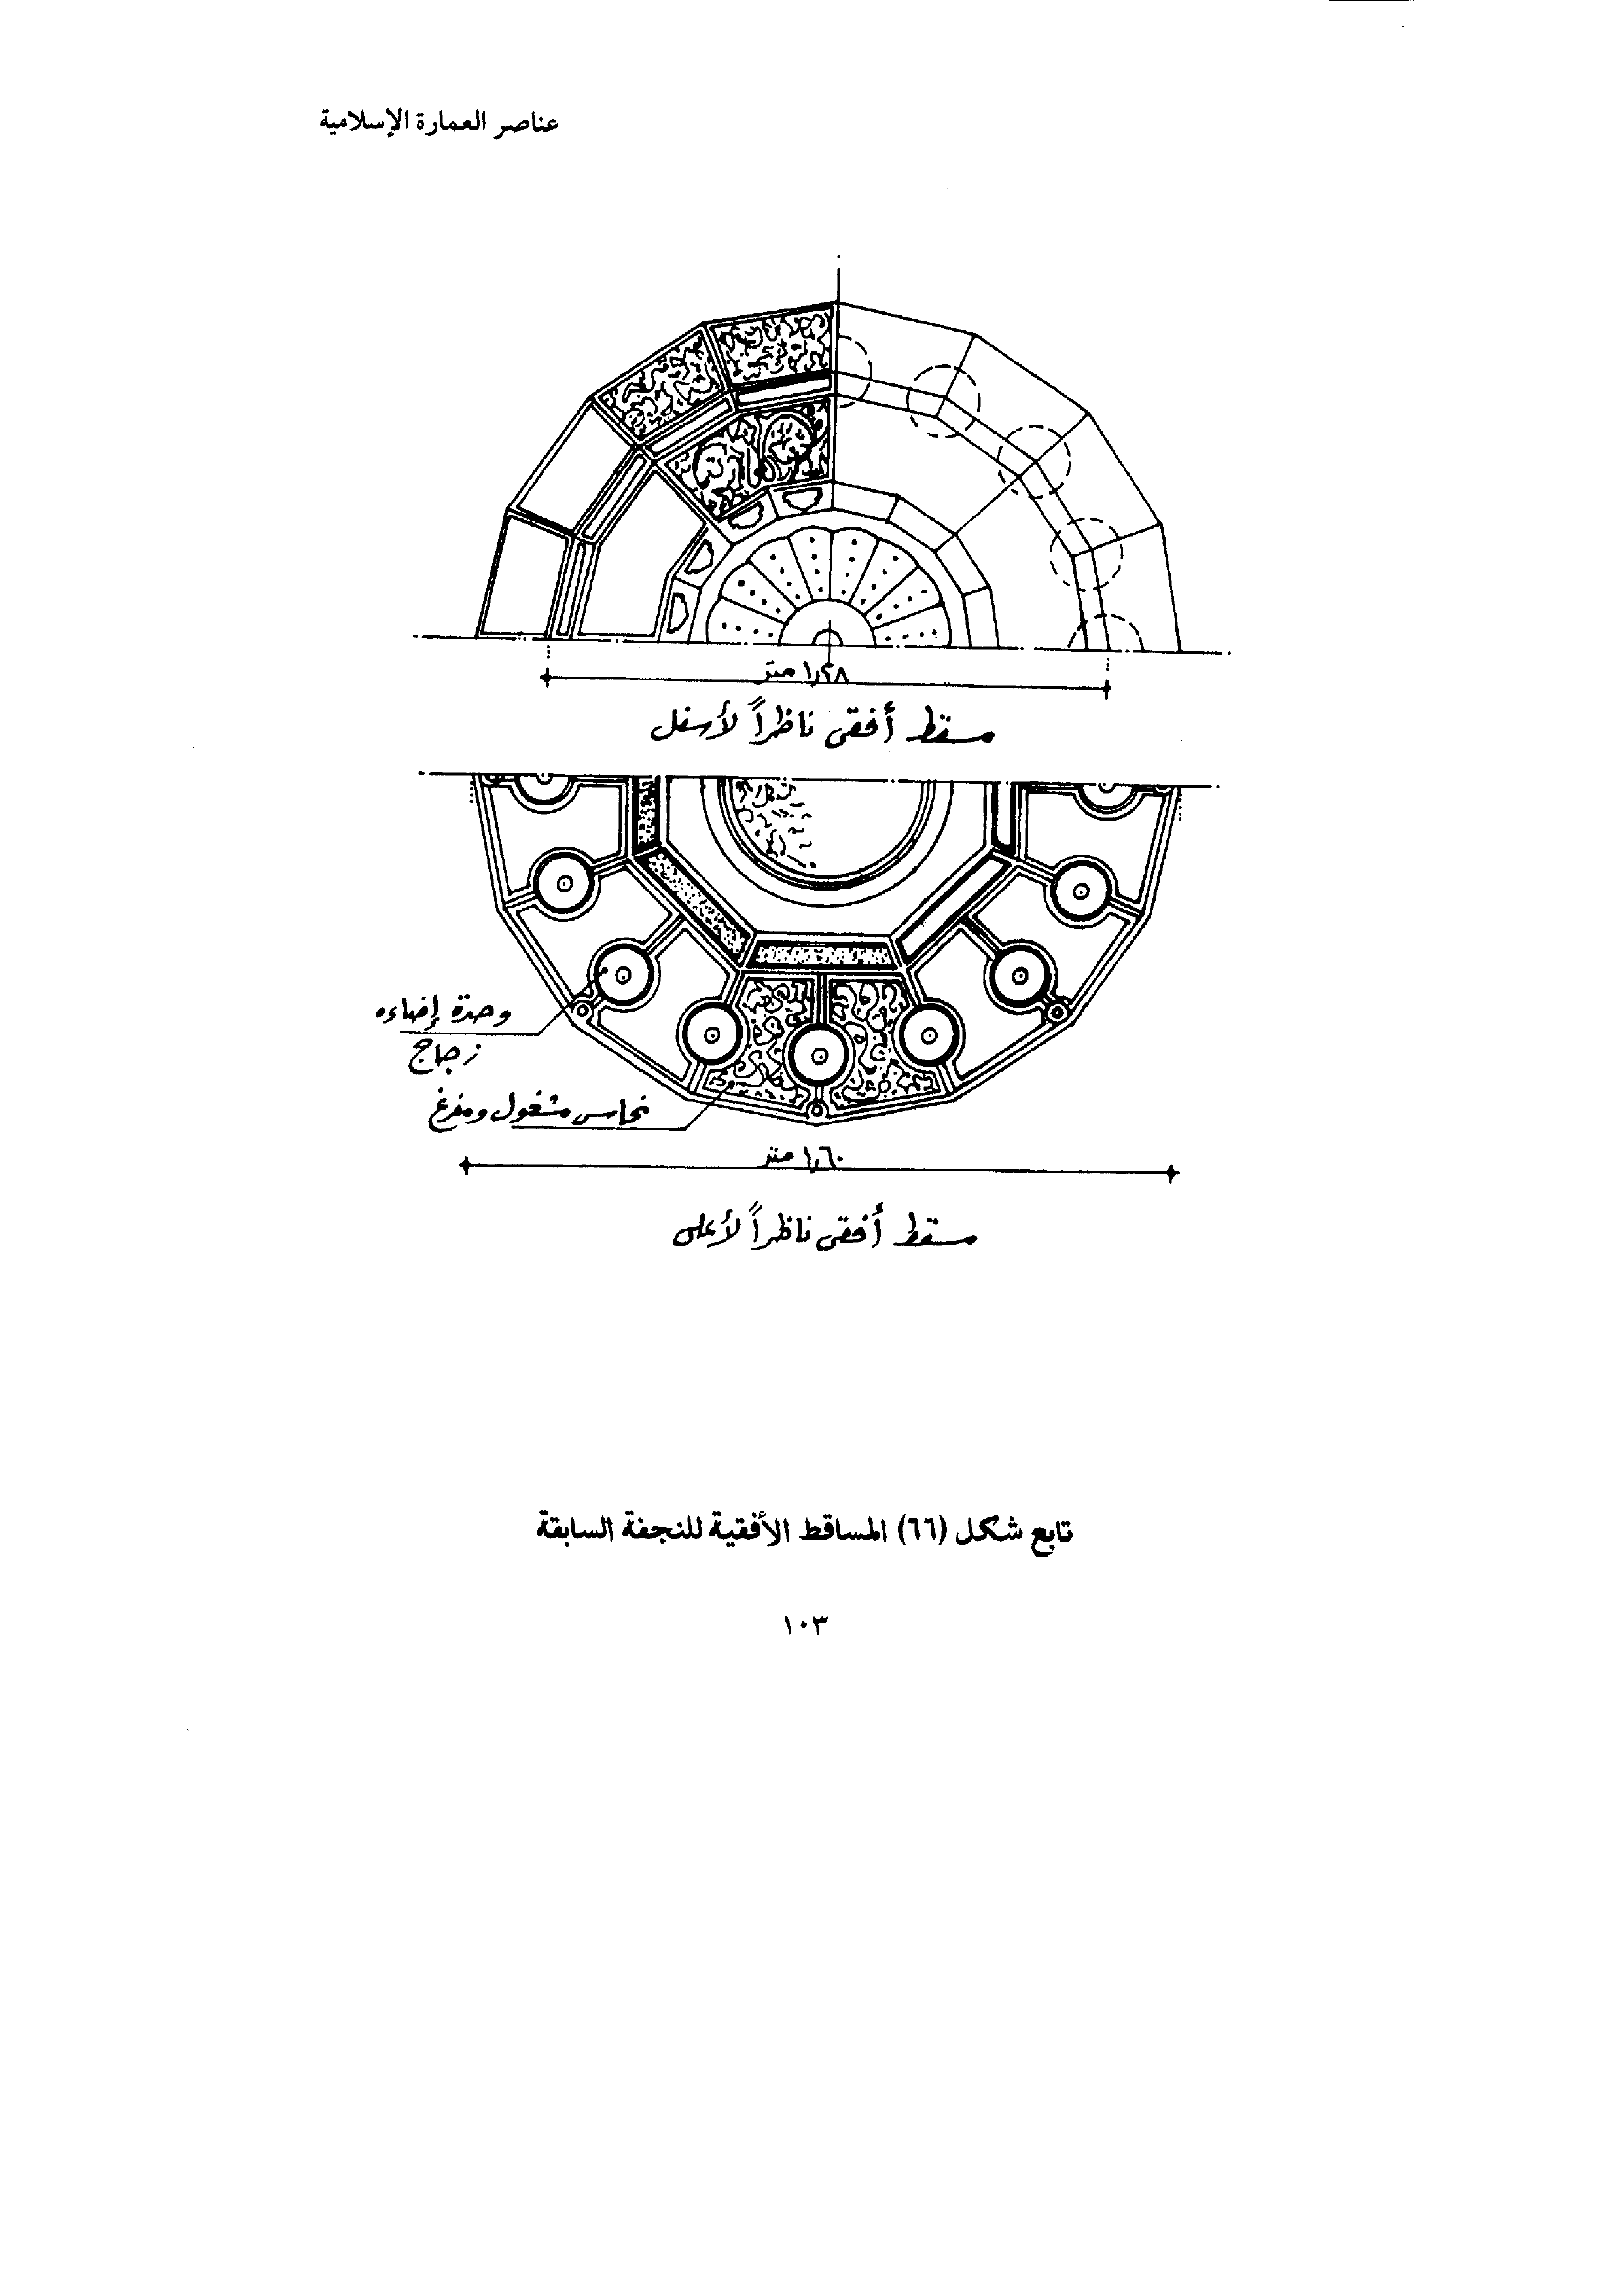 عناصر العمارة الإسلامية
١٫٢٨ متر
مسقط أفقى ناظراً لأسفل
وحدة إضاءه
زجاج
نحاس مشغول ومفرغ
١٫٦٠ متر
مسقط أفقى ناظراً لأعلى
تابع شكل (٦٦) المساقط الأفقية للنجفة السابقة
١٠٣